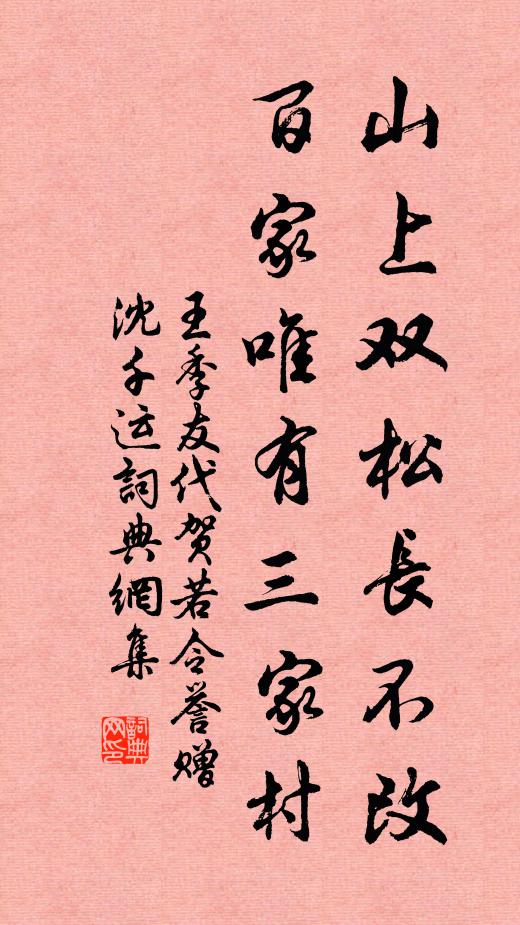 山上双松長不改
百家唯有三家村
王季友代贺若令誉赠
沈千运詞典網集
詞典網印